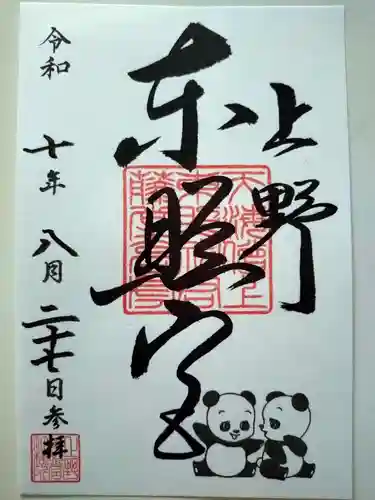 上野
東照宮
令和 七年 八月 二十七日 参拝